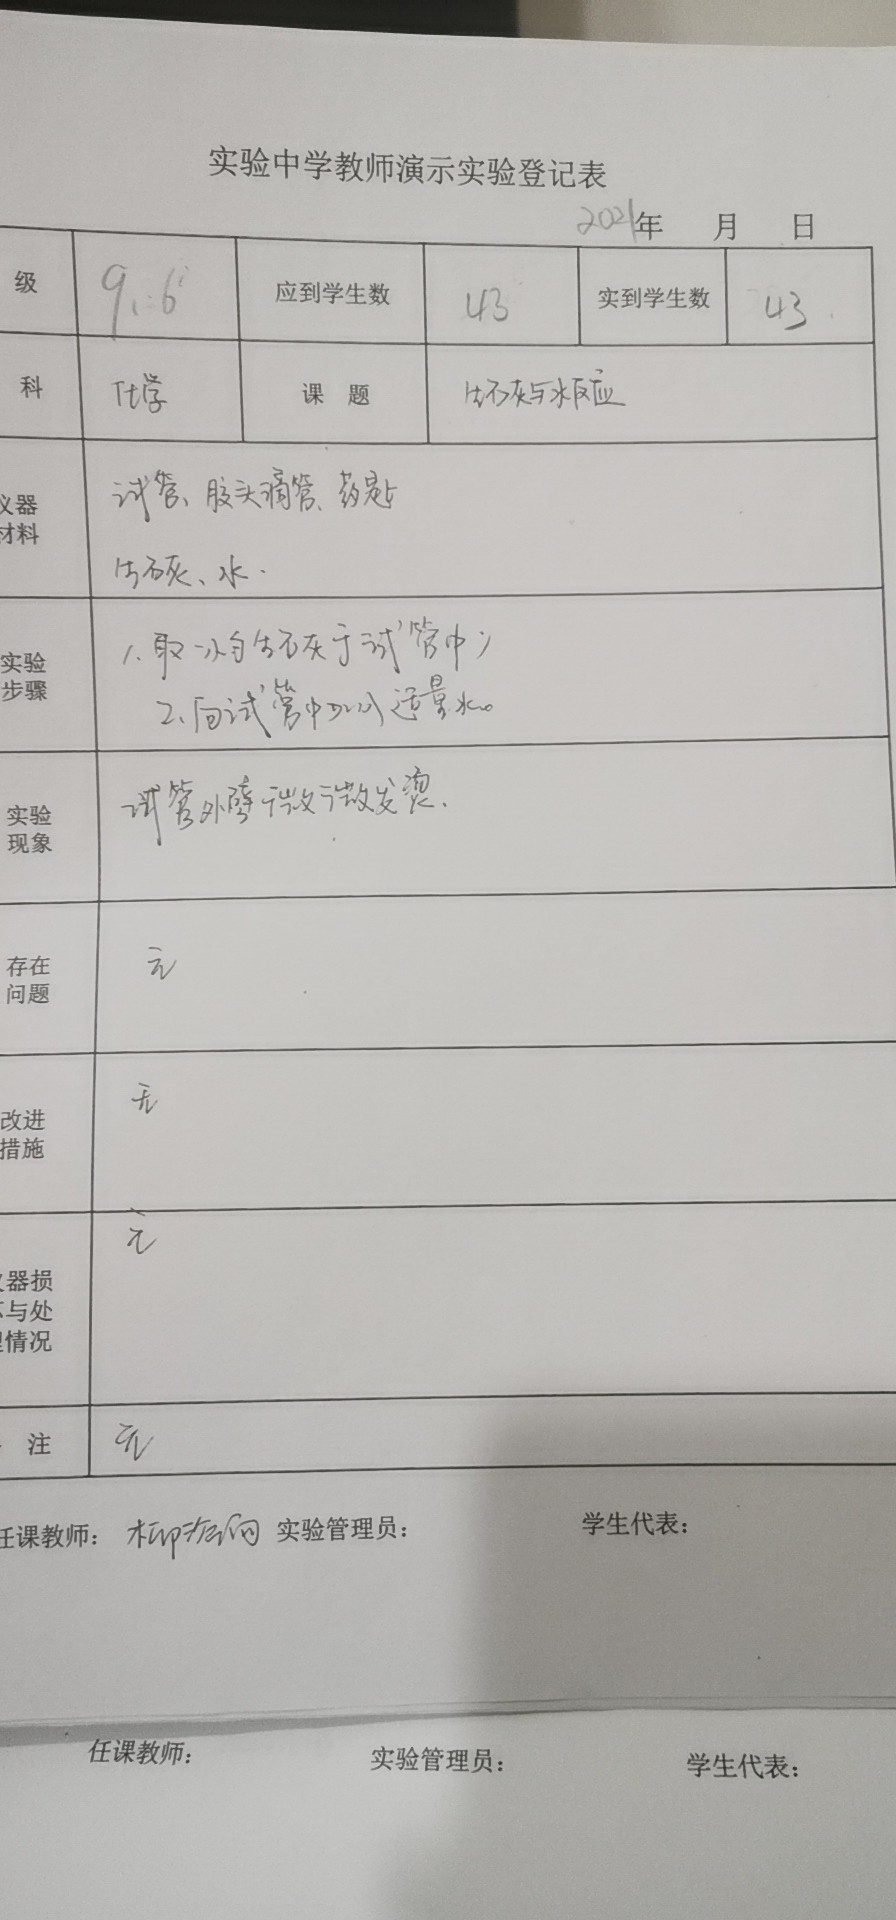 实验中学教师演示实验登记表
2021年 月 日
级 9.6 应到学生数 43 实到学生数 43
科 化学 课 题 生石灰与水反应
仪器
材料
试管、胶头滴管、药匙
生石灰、水.
实验
步骤
1.取少匀生石灰于试管中;
2.向试管中加入适量水。
实验
现象
试管外壁微微发烫.
存在
问题
无
改进
措施
无
器损
与处
情况
无
注 无
任课教师: 实验管理员: 学生代表:
任课教师: 实验管理员: 学生代表: